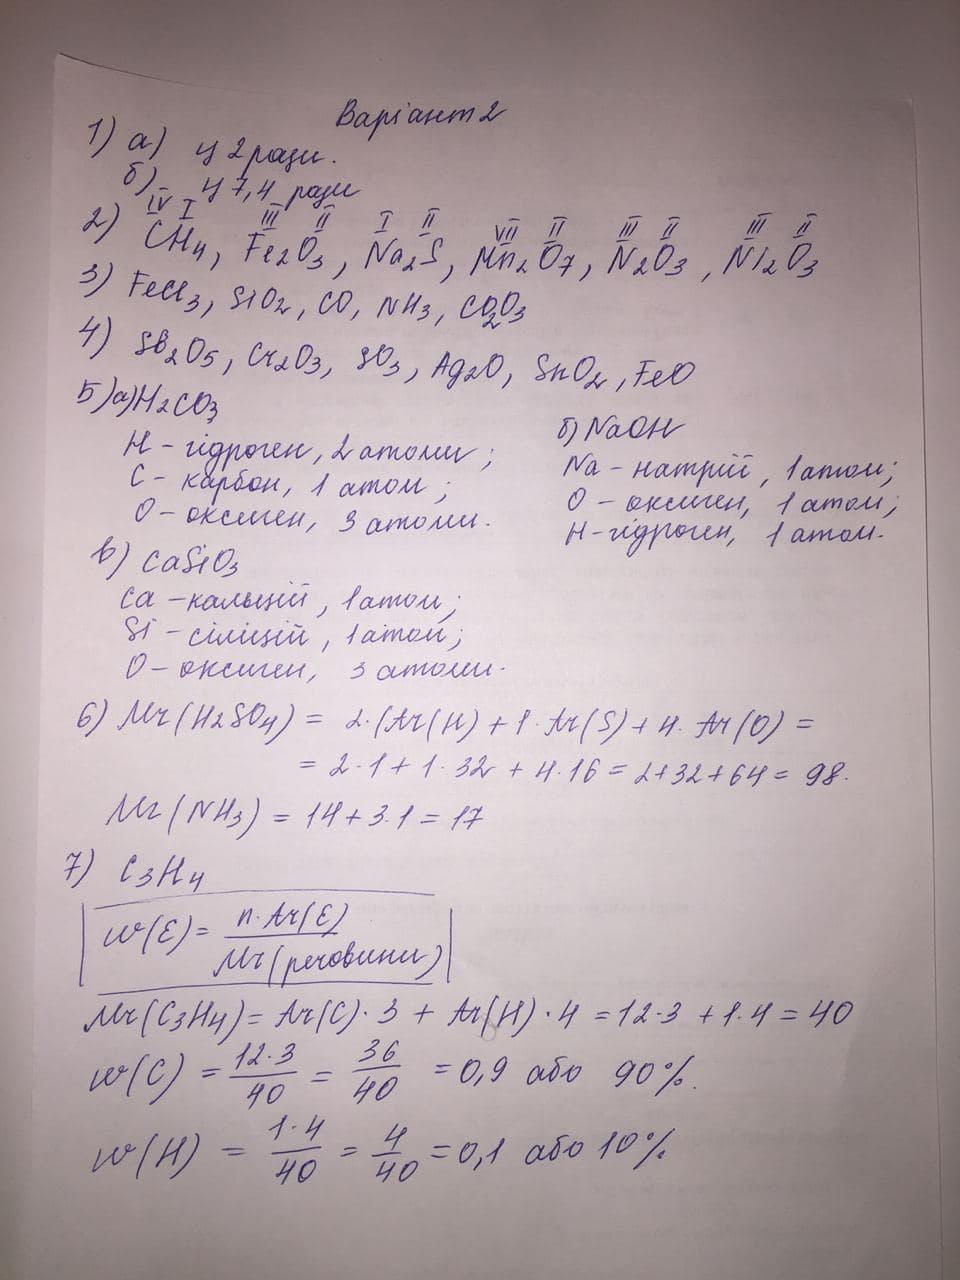 Варіант 2
1) а) у 2 рази.
б) у 7,4 рази
IV I III II I II VII II III II III II
2) CH4, Fe2O3, Na2S, Mn2O7, N2O3, Ni2O3
3) FeCl3, SiO2, CO, NH3, CO2O3
4) Sb2O5, Cr2O3, SO3, Ag2O, SnO2, FeO
5) а) H2CO3
H - гідроген, 2 атоми;
C - карбон, 1 атом;
O - оксиген, 3 атоми.
б) NaOH
Na - натрій, 1 атом;
O - оксиген, 1 атом;
H - гідроген, 1 атом.
в) CaSiO3
Ca - кальцій, 1 атом;
Si - сіліцій, 1 атом;
O - оксиген, 3 атоми.
6) Mr(H2SO4) = 2·(Ar(H) + 1·Ar(S) + 4·Ar(O) =
= 2·1 + 1·32 + 4·16 = 2+32+64 = 98.
Mr(NH3) = 14 + 3·1 = 17
7) C3H4
w(E) = n·Ar(E) / Mr(речовини)
Mr(C3H4) = Ar(C)·3 + Ar(H)·4 = 12·3 + 1·4 = 40
w(C) = 12·3/40 = 36/40 = 0,9 або 90%.
w(H) = 1·4/40 = 4/40 = 0,1 або 10%